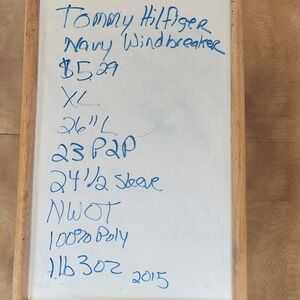 Tommy Hilfiger
Navy Windbreaker
$5.29
XL
26"L
23 P2P
24 1/2 Sleeve
NWOT
100% Poly
1lb 3oz 2015